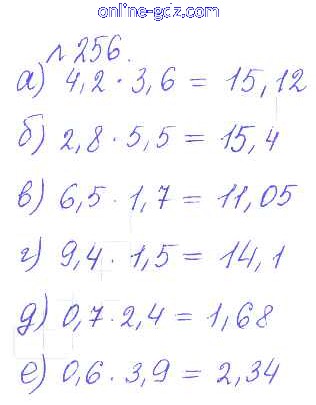 online-gdz.com
№256.
а) 4,2 · 3,6 = 15,12
б) 2,8 · 5,5 = 15,4
в) 6,5 · 1,7 = 11,05
г) 9,4 · 1,5 = 14,1
д) 0,7 · 2,4 = 1,68
е) 0,6 · 3,9 = 2,34